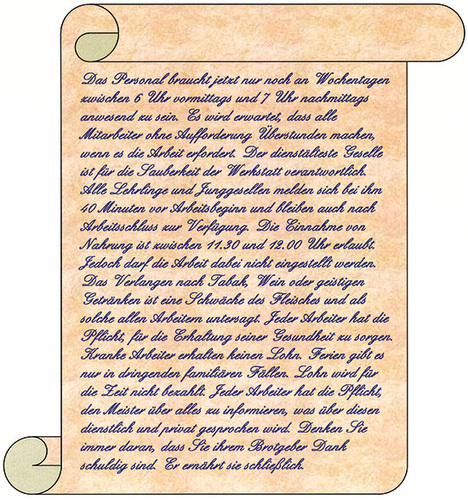 Das Personal braucht jetzt nur noch an Wochentagen
zwischen 6 Uhr vormittags und 7 Uhr nachmittags
anwesend zu sein. Es wird erwartet, dass alle
Mitarbeiter ohne Aufforderung Überstunden machen,
wenn es die Arbeit erfordert. Der dienstälteste Geselle
ist für die Sauberkeit der Werkstatt verantwortlich.
Alle Lehrlinge und Junggesellen melden sich bei ihm
40 Minuten vor Arbeitsbeginn und bleiben auch nach
Arbeitsschluss zur Verfügung. Die Einnahme von
Nahrung ist zwischen 11.30 und 12.00 Uhr erlaubt.
Jedoch darf die Arbeit dabei nicht eingestellt werden.
Das Verlangen nach Tabak, Wein oder geistigen
Getränken ist eine Schwäche des Fleisches und als
solche allen Arbeitern untersagt. Jeder Arbeiter hat die
Pflicht, für die Erhaltung seiner Gesundheit zu sorgen.
Kranke Arbeiter erhalten keinen Lohn. Ferien gibt es
nur in dringenden familiären Fällen. Lohn wird für
die Zeit nicht bezahlt. Jeder Arbeiter hat die Pflicht,
den Meister über alles zu informieren, was über diesen
dienstlich und privat gesprochen wird. Denken Sie
immer daran, dass Sie ihrem Brotgeber Dank
schuldig sind. Er ernährt sie schließlich.